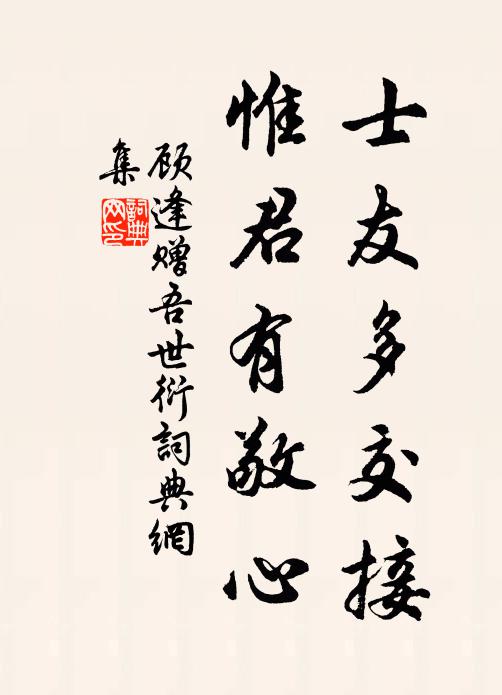 士友多交接
惟君有敬心
顾逢赠吾世衍詞典網
集
詞典
网印